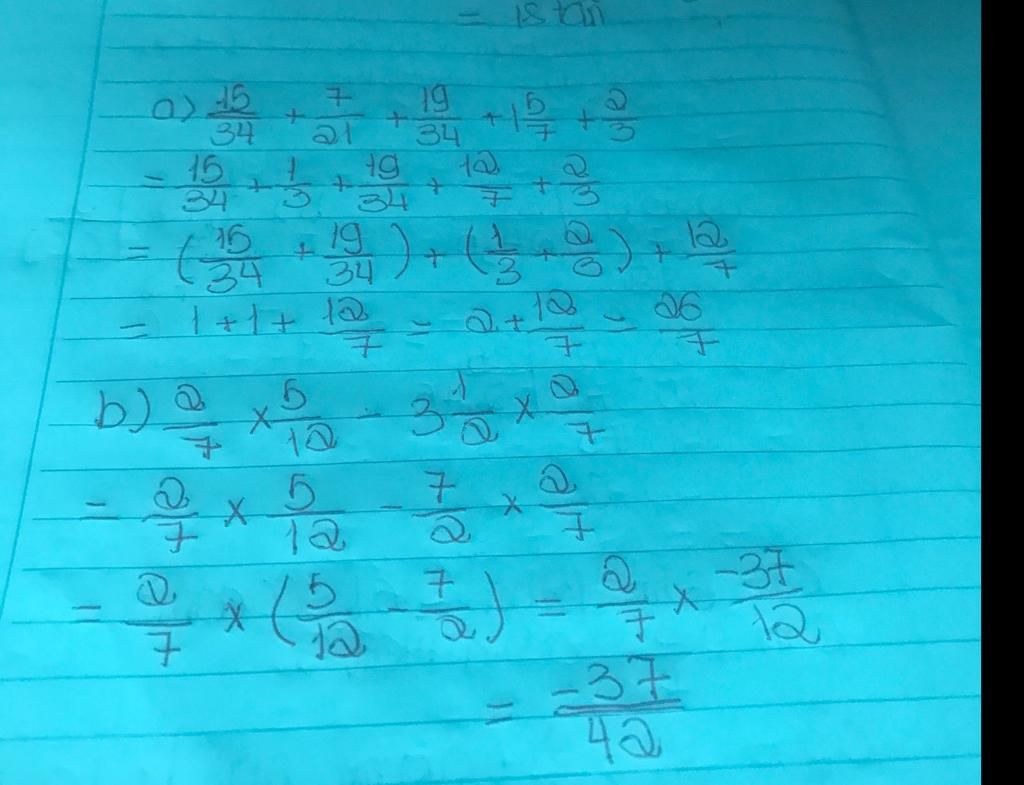 = 18 tấn
a) 15/34 + 7/21 + 19/34 + 1 5/7 + 2/3
= 15/34 + 1/3 + 19/34 + 12/7 + 2/3
= (15/34 + 19/34) + (1/3 + 2/3) + 12/7
= 1 + 1 + 12/7 = 2 + 12/7 = 26/7
b) 2/7 × 5/12 - 3 1/2 × 2/7
= 2/7 × 5/12 - 7/2 × 2/7
= 2/7 × (5/12 - 7/2) = 2/7 × -37/12
= -37/42